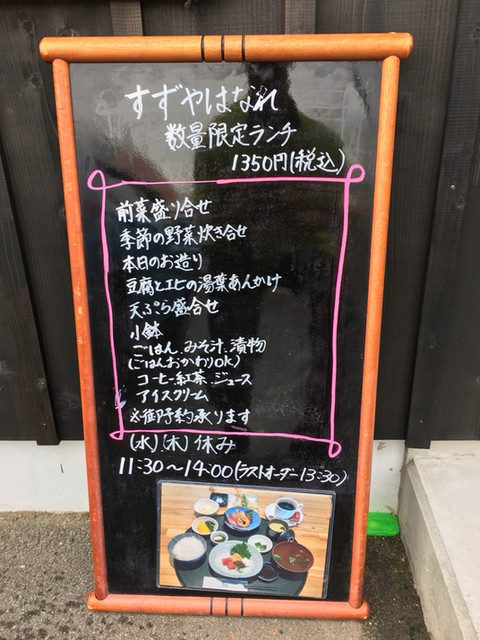 すずやはなれ
数量限定ランチ
1350円(税込)
前菜盛り合せ
季節の野菜炊き合せ
本日のお造り
豆腐とエビの湯葉あんかけ
天ぷら盛合せ
小鉢
ごはん.みそ汁.漬物
(ごはんおかわりOK)
コーヒー.紅茶.ジュース
アイスクリーム
※御予約承ります
(水).(木)休み
11:30～14:00(ラストオーダー13:30)